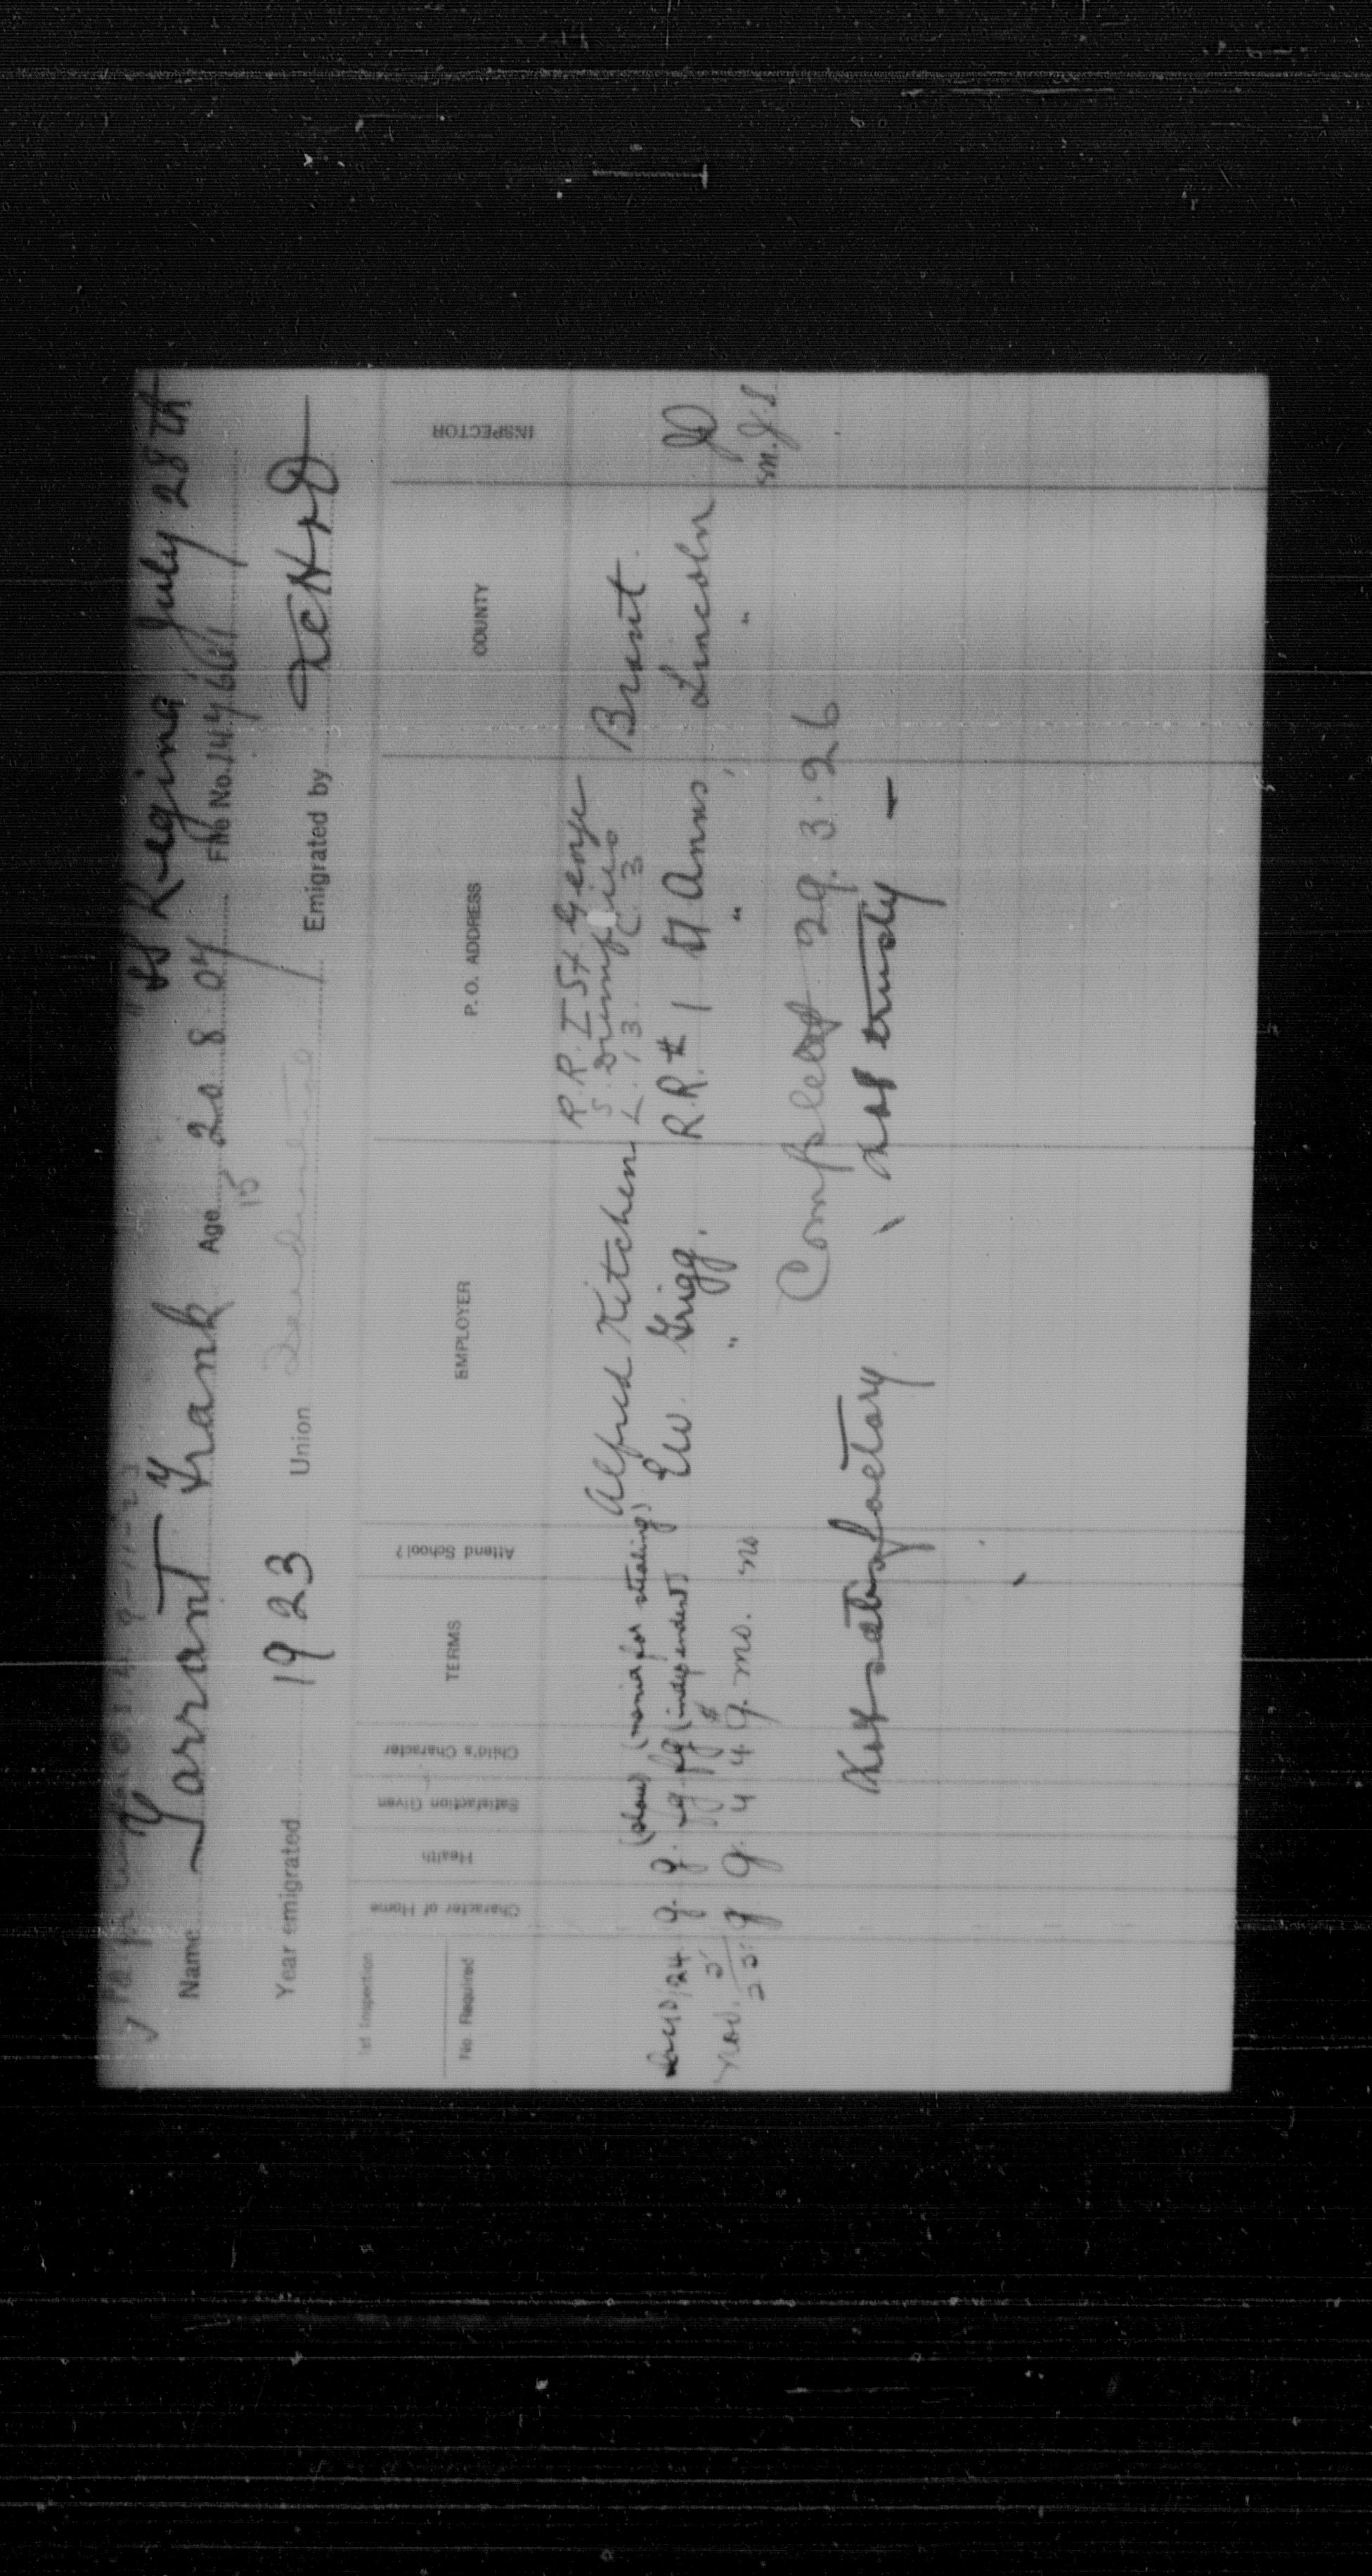 "SS Regina July 28th
Name Tarrant Frank Age 20.8.07 File No. 147661
15
Year emigrated 1923 Union Emigrated by
1st Inspection
No Required Character of Home Health Satisfaction Given Child's Character TERMS Attend School? EMPLOYER P. O. ADDRESS COUNTY INSPECTOR
Alfred Kitchen R.R. 1 St. George Brant.
S. Dumfries
L. 13. C. 3
(slow) (mania for stealing)
24 g. g. fg fg (independent) Ew. Grigg. R.R. # 1 St Anns Lincoln
Nov. 5/25 g g. 4 4 9. mo. no " " " m.J.S.
Complete 29.3.26
Not satisfactory. Not trusty —